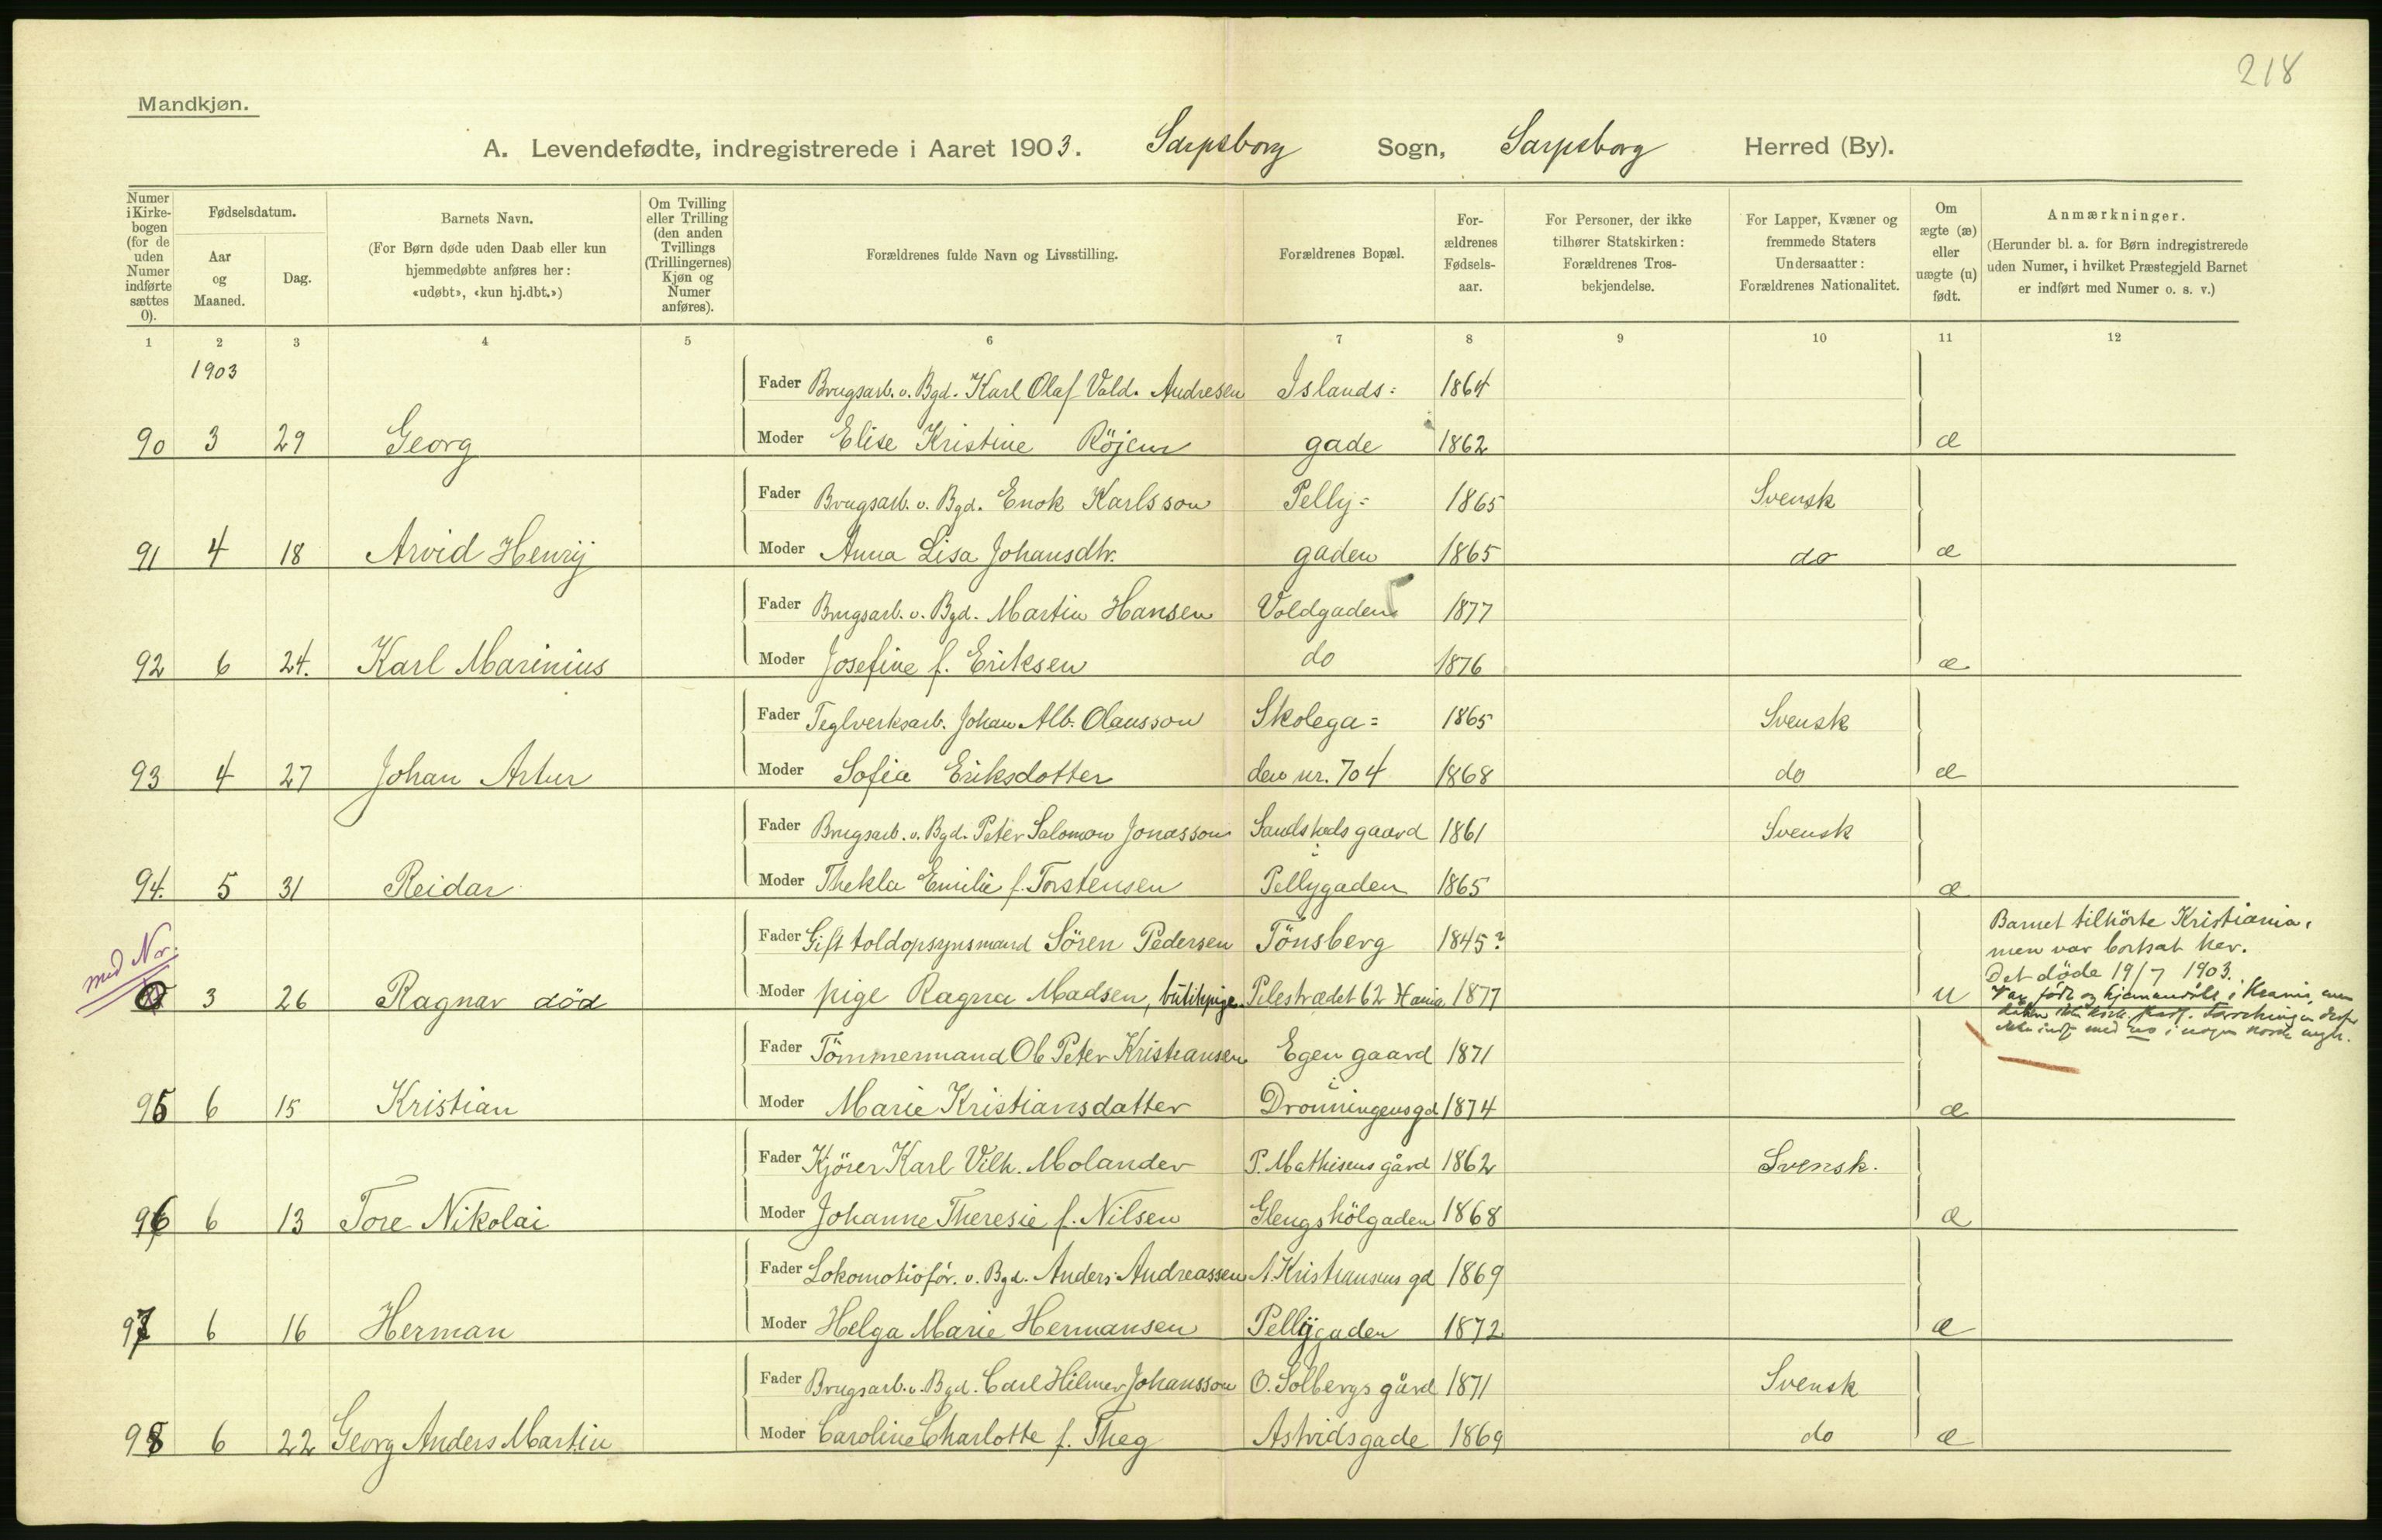 218
Mandkjøn.
A. Levendefødte, indregistrerede i Aaret 1903. Sarpsborg Sogn, Sarpsborg Herred (By).
Numer i Kirke-bogen (for de uden Numer indførte sættes 0).
Fødselsdatum.
Aar og Maaned.
Dag.
Barnets Navn.
(For Børn døde uden Daab eller kun hjemmedøbte anføres her: «udøbt», «kun hj.dbt.»)
Om Tvilling eller Trilling (den anden Tvillings (Trillingernes) Kjøn og Numer anføres).
Forældrenes fulde Navn og Livsstilling.
Forældrenes Bopæl.
For-ældrenes Fødsels-aar.
For Personer, der ikke tilhører Statskirken: Forældrenes Tros-bekjendelse.
For Lapper, Kvæner og fremmede Staters Undersaatter: Forældrenes Nationalitet.
Om ægte (æ) eller uægte (u) født.
Anmærkninger.
(Herunder bl. a. for Børn indregistrerede uden Numer, i hvilket Præstegjeld Barnet er indført med Numer o. s. v.)
1 2 3 4 5 6 7 8 9 10 11 12
1903
Fader Brugsarb. v. Bgd. Karl Olaf Vald. Andresen Islands= 1864
90 3 29 Georg Moder Elise Kristine Röjem gade 1862 æ
Fader Brugsarb. v. Bgd. Enok Karlsson Pelly= 1865 Svensk
91 4 18 Arvid Henrij Moder Anna Lisa Johansdtr. gaden 1865 do æ
Fader Brugsarb. v. Bgd. Martin Hansen Voldgaden 1877
92 6 24. Karl Marinius Moder Josefine f. Eriksen do 1876 æ
Fader Teglverksarb. Johan Alb. Olausson Skolega= 1865 Svensk
93 4 27 Johan Artur Moder Sofia Eriksdotter den nr. 704 1868 do æ
Fader Brugsarb. v. Bgd. Peter Salomon Jonasson Sandsheds gaard 1861 Svensk
94. 5 31 Reidar Moder Thekla Emilie f. Torstensen Pellygaden 1865 æ
Fader Gift toldopsynsmand Sören Pedersen Tönsberg 1845? Barnet tilhörte Kristiania,
men var bortsat her.
med Nr. Det döde 19/7 1903.
0 3 26 Ragnar död Moder pige Ragna Madsen, butikpige Pilestrædet 62 Kania 1877 u Var född og hjemmedöbt i Krania, men
ikke indf. med no i nogen norsk
Fader Tömmermand Ole Peter Kristiansen Egen gaard 1871
95 6 15 Kristian Moder Marie Kristiansdatter Dronningensgd 1874 æ
Fader Kjörer Karl Vilh. Molander P. Mathisens gård 1862 Svensk.
96 6 13 Tore Nikolai Moder Johanne Theresie f. Nilsen Glengshölgaden 1868 æ
Fader Lokomotivför. v. Bgd. Anders Andreassen A. Kristiansens gd 1869
97 6 16 Herman Moder Helga Marie Hermansen Pellygaden 1872 æ
Fader Brugsarb. v. Bgd. Carl Hilmer Johansson O. Solbergs gård 1871 Svensk
98 6 22 Georg Anders Martin Moder Caroline Charlotte f. Theg Astridsgade 1869 do æ